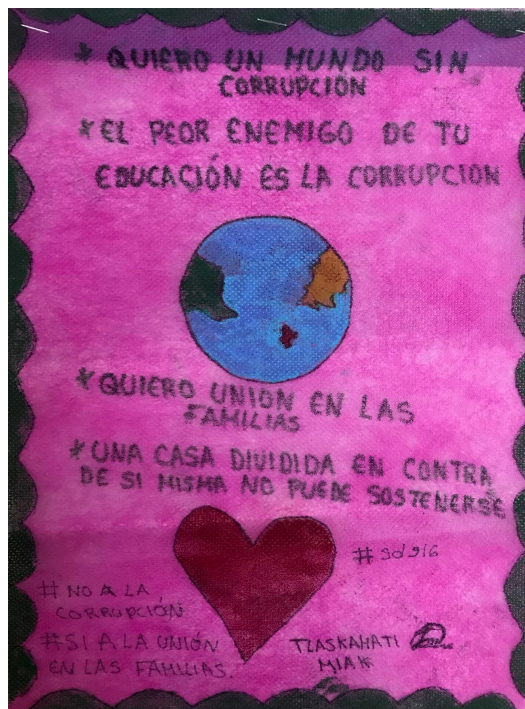 * QUIERO UN MUNDO SIN
CORRUPCIÓN
* EL PEOR ENEMIGO DE TU
EDUCACIÓN ES LA CORRUPCION
* QUIERO UNION EN LAS
FAMILIAS
* UNA CASA DIVIDIDA EN CONTRA
DE SI MISMA NO PUEDE SOSTENERSE
# Sd916
# NO A LA
CORRUPCIÓN
# SI A LA UNIÓN
EN LAS FAMILIAS.
TLASKAMATI
MIAK